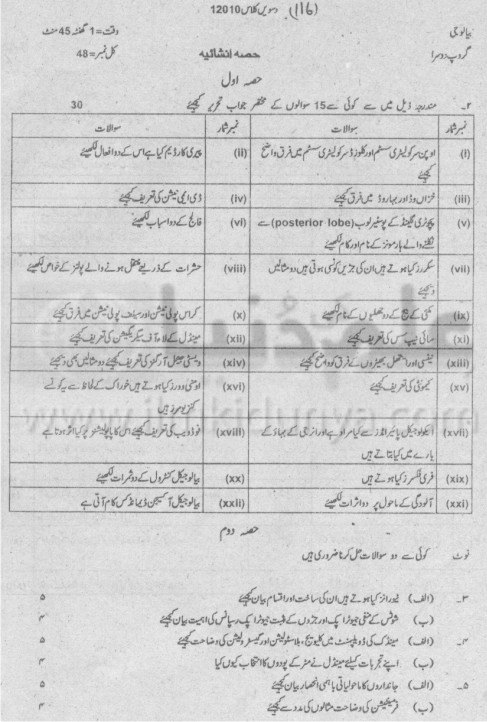 (116)
دسویں کلاس 12010
بیالوجی
وقت=1 گھنٹہ 45 منٹ
گروپ دوسرا
حصہ انشائیہ
کل نمبر=48
حصہ اول
۲۔ مندرجہ ذیل میں سے کوئی سے 15 سوالوں کے مختصر جواب تحریر کیجیئے 30
نمبرشمار سوالات نمبرشمار سوالات
(i) اوپن سرکولیٹری سسٹم اور کلوزڈ سرکولیٹری سسٹم میں فرق واضح کیجیئے
(ii) پیری کارڈیم کیا ہے اس کے دو افعال لکھیئے
(iii) خزاں وڈ اور بہار وڈ میں فرق کیجیئے
(iv) ڈی ایمی نیشن کی تعریف کیجیئے
(v) پچوٹری گلینڈ کے پوسٹیرلوب (posterior lobe) سے
نکلنے والے ہارمونز کے نام اور کام لکھیئے
(vi) فالج کے دو اسباب لکھیئے
(vii) سکرز کیا ہوتے ہیں ان کی جڑیں کونسی ہوتی ہیں دو مثالیں
دیجیئے
(viii) حشرات کے ذریعے منتقل ہونے والے پولنز کے خواص لکھیئے
(ix) مکئی کے بیج کے دو چھلکوں کے نام لکھیئے
(x) کراس پولی نیشن اور سیلف پولی نیشن میں فرق کیجیئے
(xi) سائی نیپ سس کی تعریف کیجیئے
(xii) مینڈل کے لاء آف سیگریگیشن کی تعریف کیجیئے
(xiii) بھیڑوں کے فرق کو واضح کیجیئے
(xiv) ویسٹی جیئل آرگنز کی تعریف کیجیئے دو مثالیں بھی دیجیئے
(xv) کمیونٹی کی تعریف کیجیئے
(xvi) اومنی وورز کیا ہوتے ہیں خوراک کے لحاظ سے یہ کونسے
کنزیومرز ہیں
(xvii) ایکولوجیکل پائیرامڈز سے کیا مراد ہے اور انرجی کے بہاؤ کے
بارے میں کیا بتاتے ہیں
(xviii) فوڈ ویب کی تعریف کیجیئے اس کا پاپولیشنز پر کیا اثر ہوتا ہے
(xix) فری فلکسرز کیا ہوتے ہیں
(xx) بیالوجیکل کنٹرول کے دو ثمرات لکھیئے
(xxi) آلودگی کے ماحول پر دو اثرات لکھیئے
(xxii) بیالوجیکل آکسیجن ڈیمانڈ کس کام آتی ہے
حصہ دوم
نوٹ کوئی سے دو سوالات حل کرنا ضروری ہیں
۳۔ (الف) نیورانز کیا ہوتے ہیں ان کی ساخت اور اقسام بیان کیجیئے ۵
(ب) شوٹس کے منفی جیوٹراپک اور جڑوں کے مثبت جیوٹراپک رسپانس کی اہمیت بیان کیجیئے ۴
۴۔ (الف) مینڈک کی ڈویلپمنٹ میں کلیویج، بلاسٹولیشن اور گیسٹرولیشن کی وضاحت کیجیئے ۵
(ب) اپنے تجربات کیلئے مینڈل نے مٹر کے پودوں کا انتخاب کیوں کیا ۴
۵۔ (الف) جانداروں کا ماحولیاتی باہمی انحصار بیان کیجیئے ۵
(ب) فرمینٹیشن کی وضاحت مثالوں کی مدد سے کیجیئے ۴